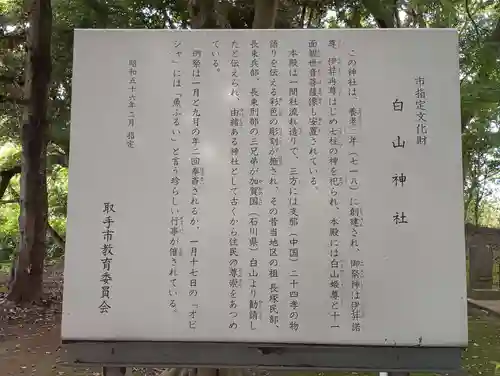 市指定文化財
白山神社
この神社は、養老二年(七一八)に創建され、御祭神は伊弉諾
尊、伊弉冉尊はじめ七柱の神を祀られ、本殿には白山姫尊と十一
面観世音菩薩像も安置されている。
本殿は一間社流れ造りで、三方には支那(中国)二十四孝の物
語りを伝える彩色の彫刻が施され、その昔当地区の豪族、長塚民部、
長東兵部、長東刑部の三兄弟が加賀国(石川県)白山より勧請し
たと伝えられ、由緒ある神社として古くから住民の尊崇をあつめ
ている。
例祭は一月と九月の年二回奉斎されるが、一月十七日の「オビ
シャ」には「魚ぶるい」と言う珍らしい行事が催されている。
昭和五十六年二月 指定
取手市教育委員会